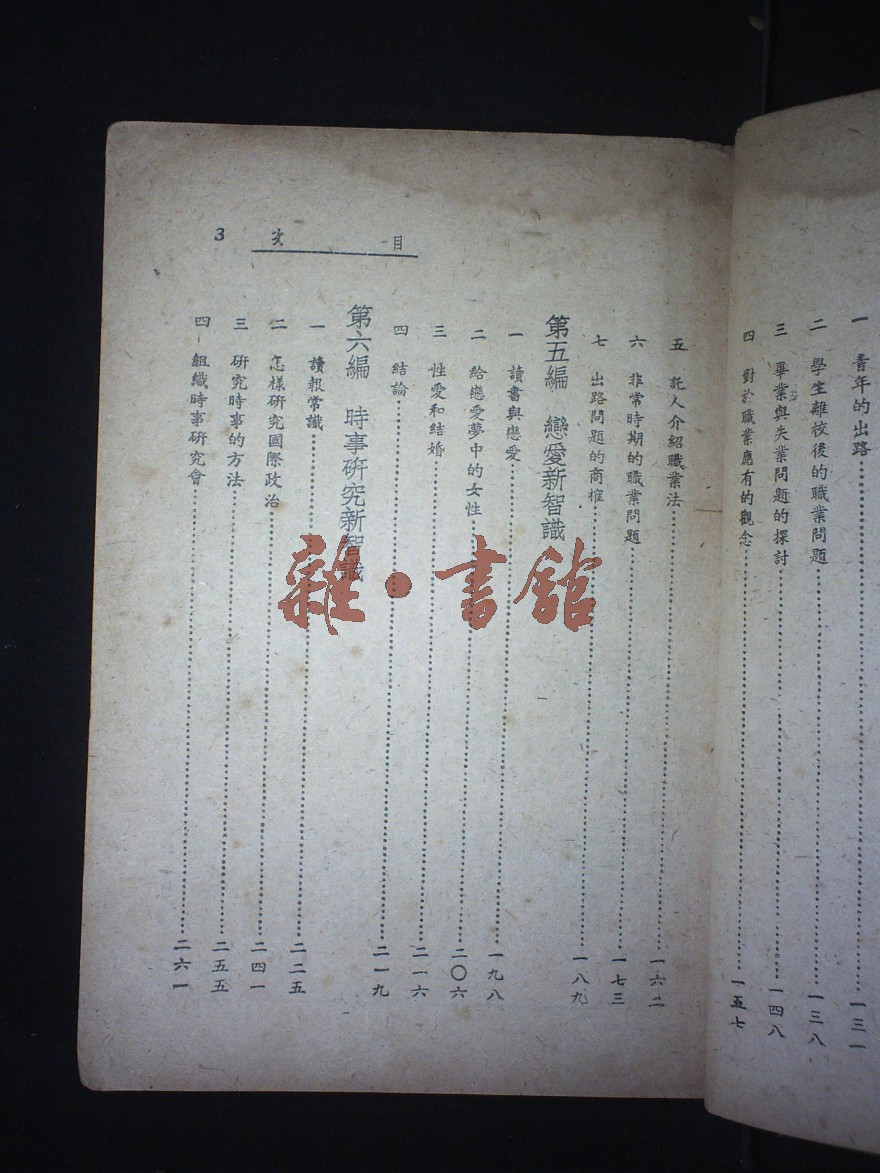 一 青年的出路 一三一
二 學生離校後的職業問題 一三八
三 畢業與失業問題的探討 一四八
四 對於職業應有的觀念 一五七
目 次 3
五 託人介紹職業法 一六二
六 非常時期的職業問題 一七三
七 出路問題的商榷 一八九
第五編 戀愛新智識
一 讀書與戀愛 一九八
二 給戀愛夢中的女性 二〇六
三 性愛和結婚 二一六
四 結論 二一九
第六編 時事研究新智識
一 讀報常識 二二五
二 怎樣研究國際政治 二四一
三 研究時事的方法 二五五
四 組織時事研究會 二六一
雜·書館